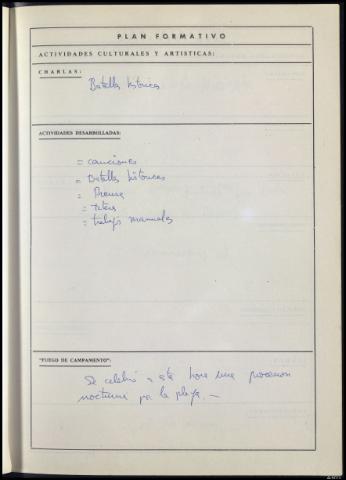 PLAN FORMATIVO
ACTIVIDADES CULTURALES Y ARTISTICAS:
CHARLAS:
Batallas históricas
ACTIVIDADES DESARROLLADAS:
= canciones
= Batallas históricas
= Prensa
= trabajos manuales
"FUEGO DE CAMPAMENTO":
Se celebró a esta hora una procesion
nocturna por la playa. —